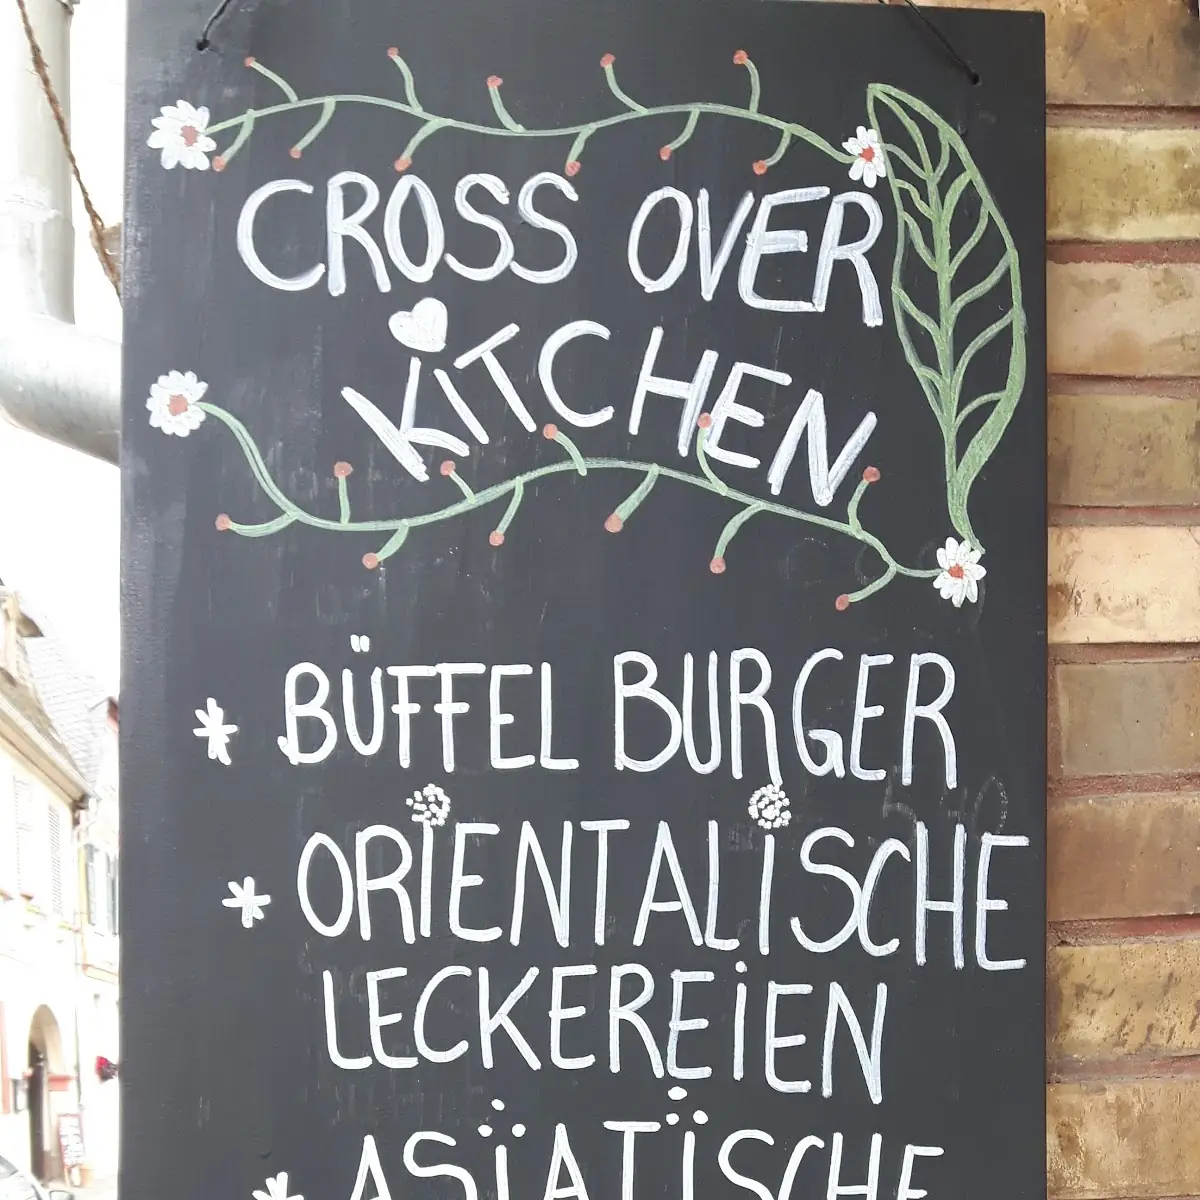 CROSS OVER
KITCHEN
* BÜFFEL BURGER
* ORIENTALISCHE
LECKEREIEN
* ASIATISCHE